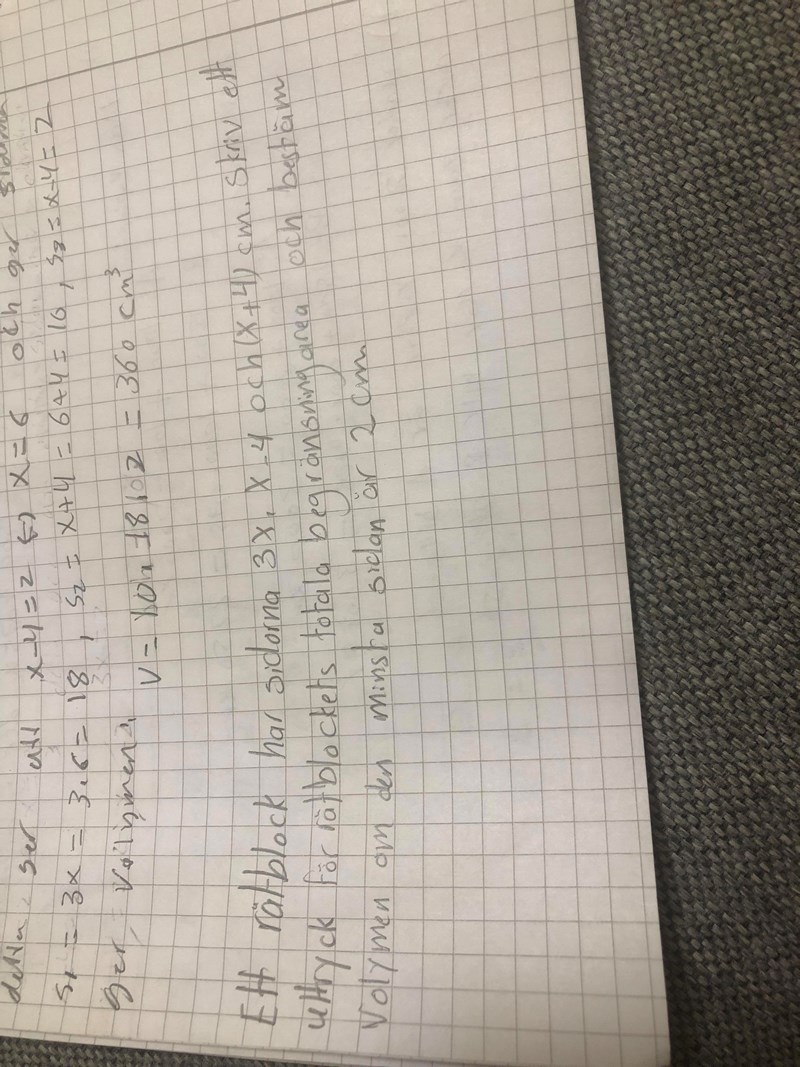 detta ger att x-4=2 ⇔ x=6 och ger sidorna
S₁ = 3x = 3·6 = 18, S₂ = x+4 = 6+4 = 10, S₃ = x-4 = 2
Ger, Volymen,
V = 10·18·2 = 360 cm³
Ett rätblock har sidorna 3x, x-4 och (x+4) cm. Skriv ett
uttryck för rätblockets totala begränsningarea och bestäm
Volymen om den minsta sidan är 2 cm.